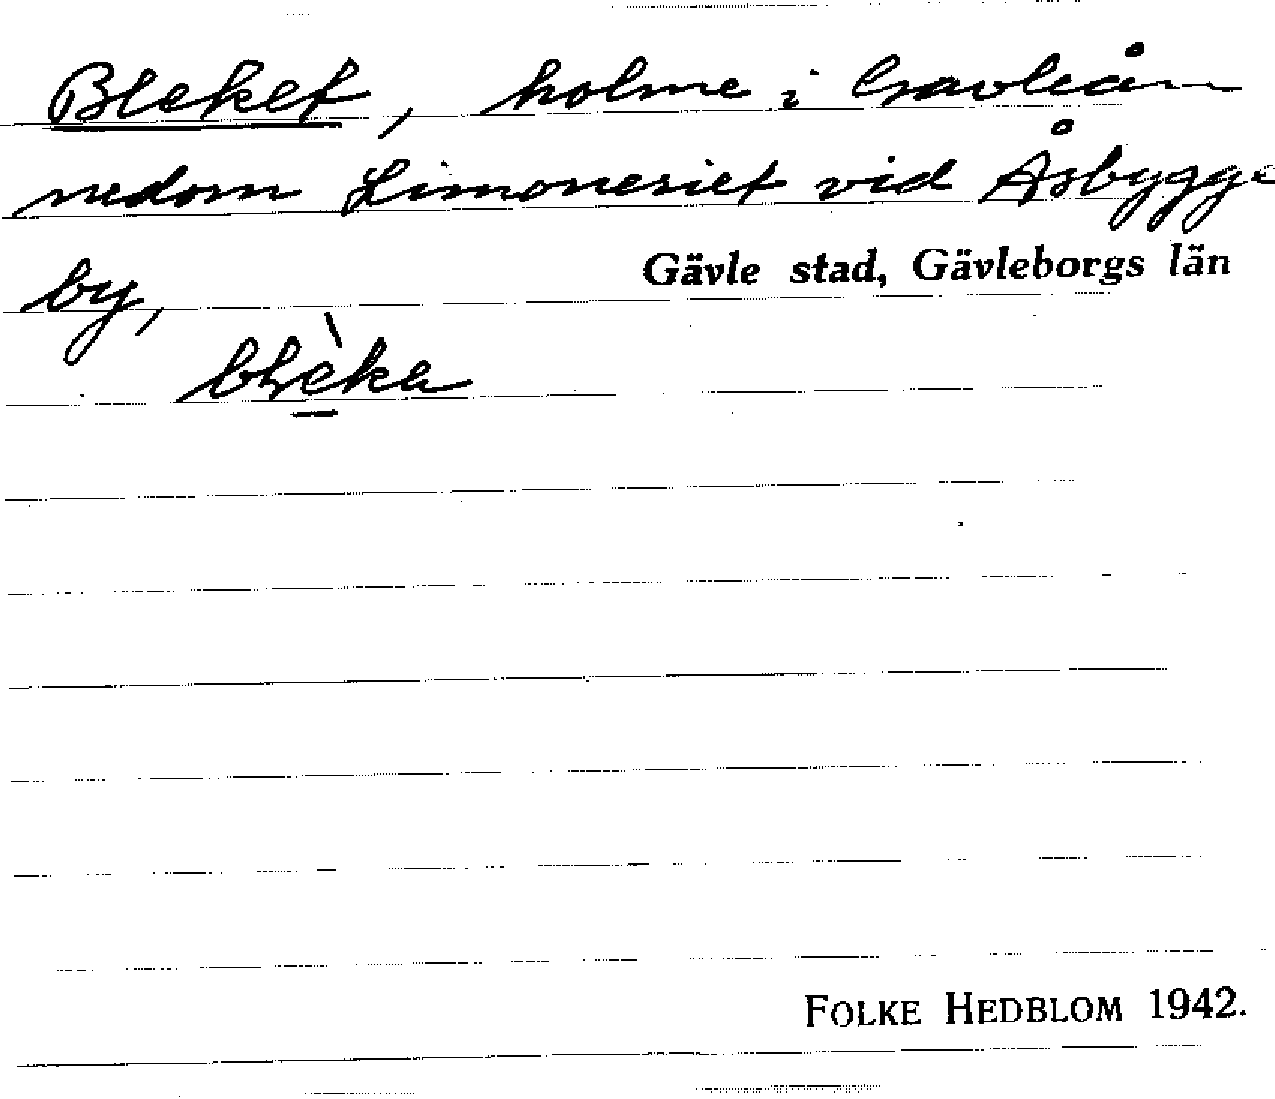 Bleket, holme i Gavleån
nedom Limoneriet vid Åsbygge
by,
Gävle stad, Gävleborgs län
FOLKE HEDBLOM 1942.